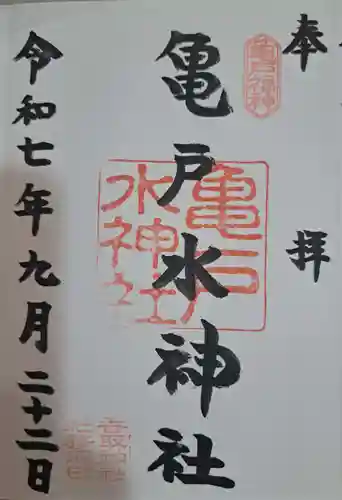 奉拝
亀戸水神社
令和七年九月二十二日
亀戸
水神
社